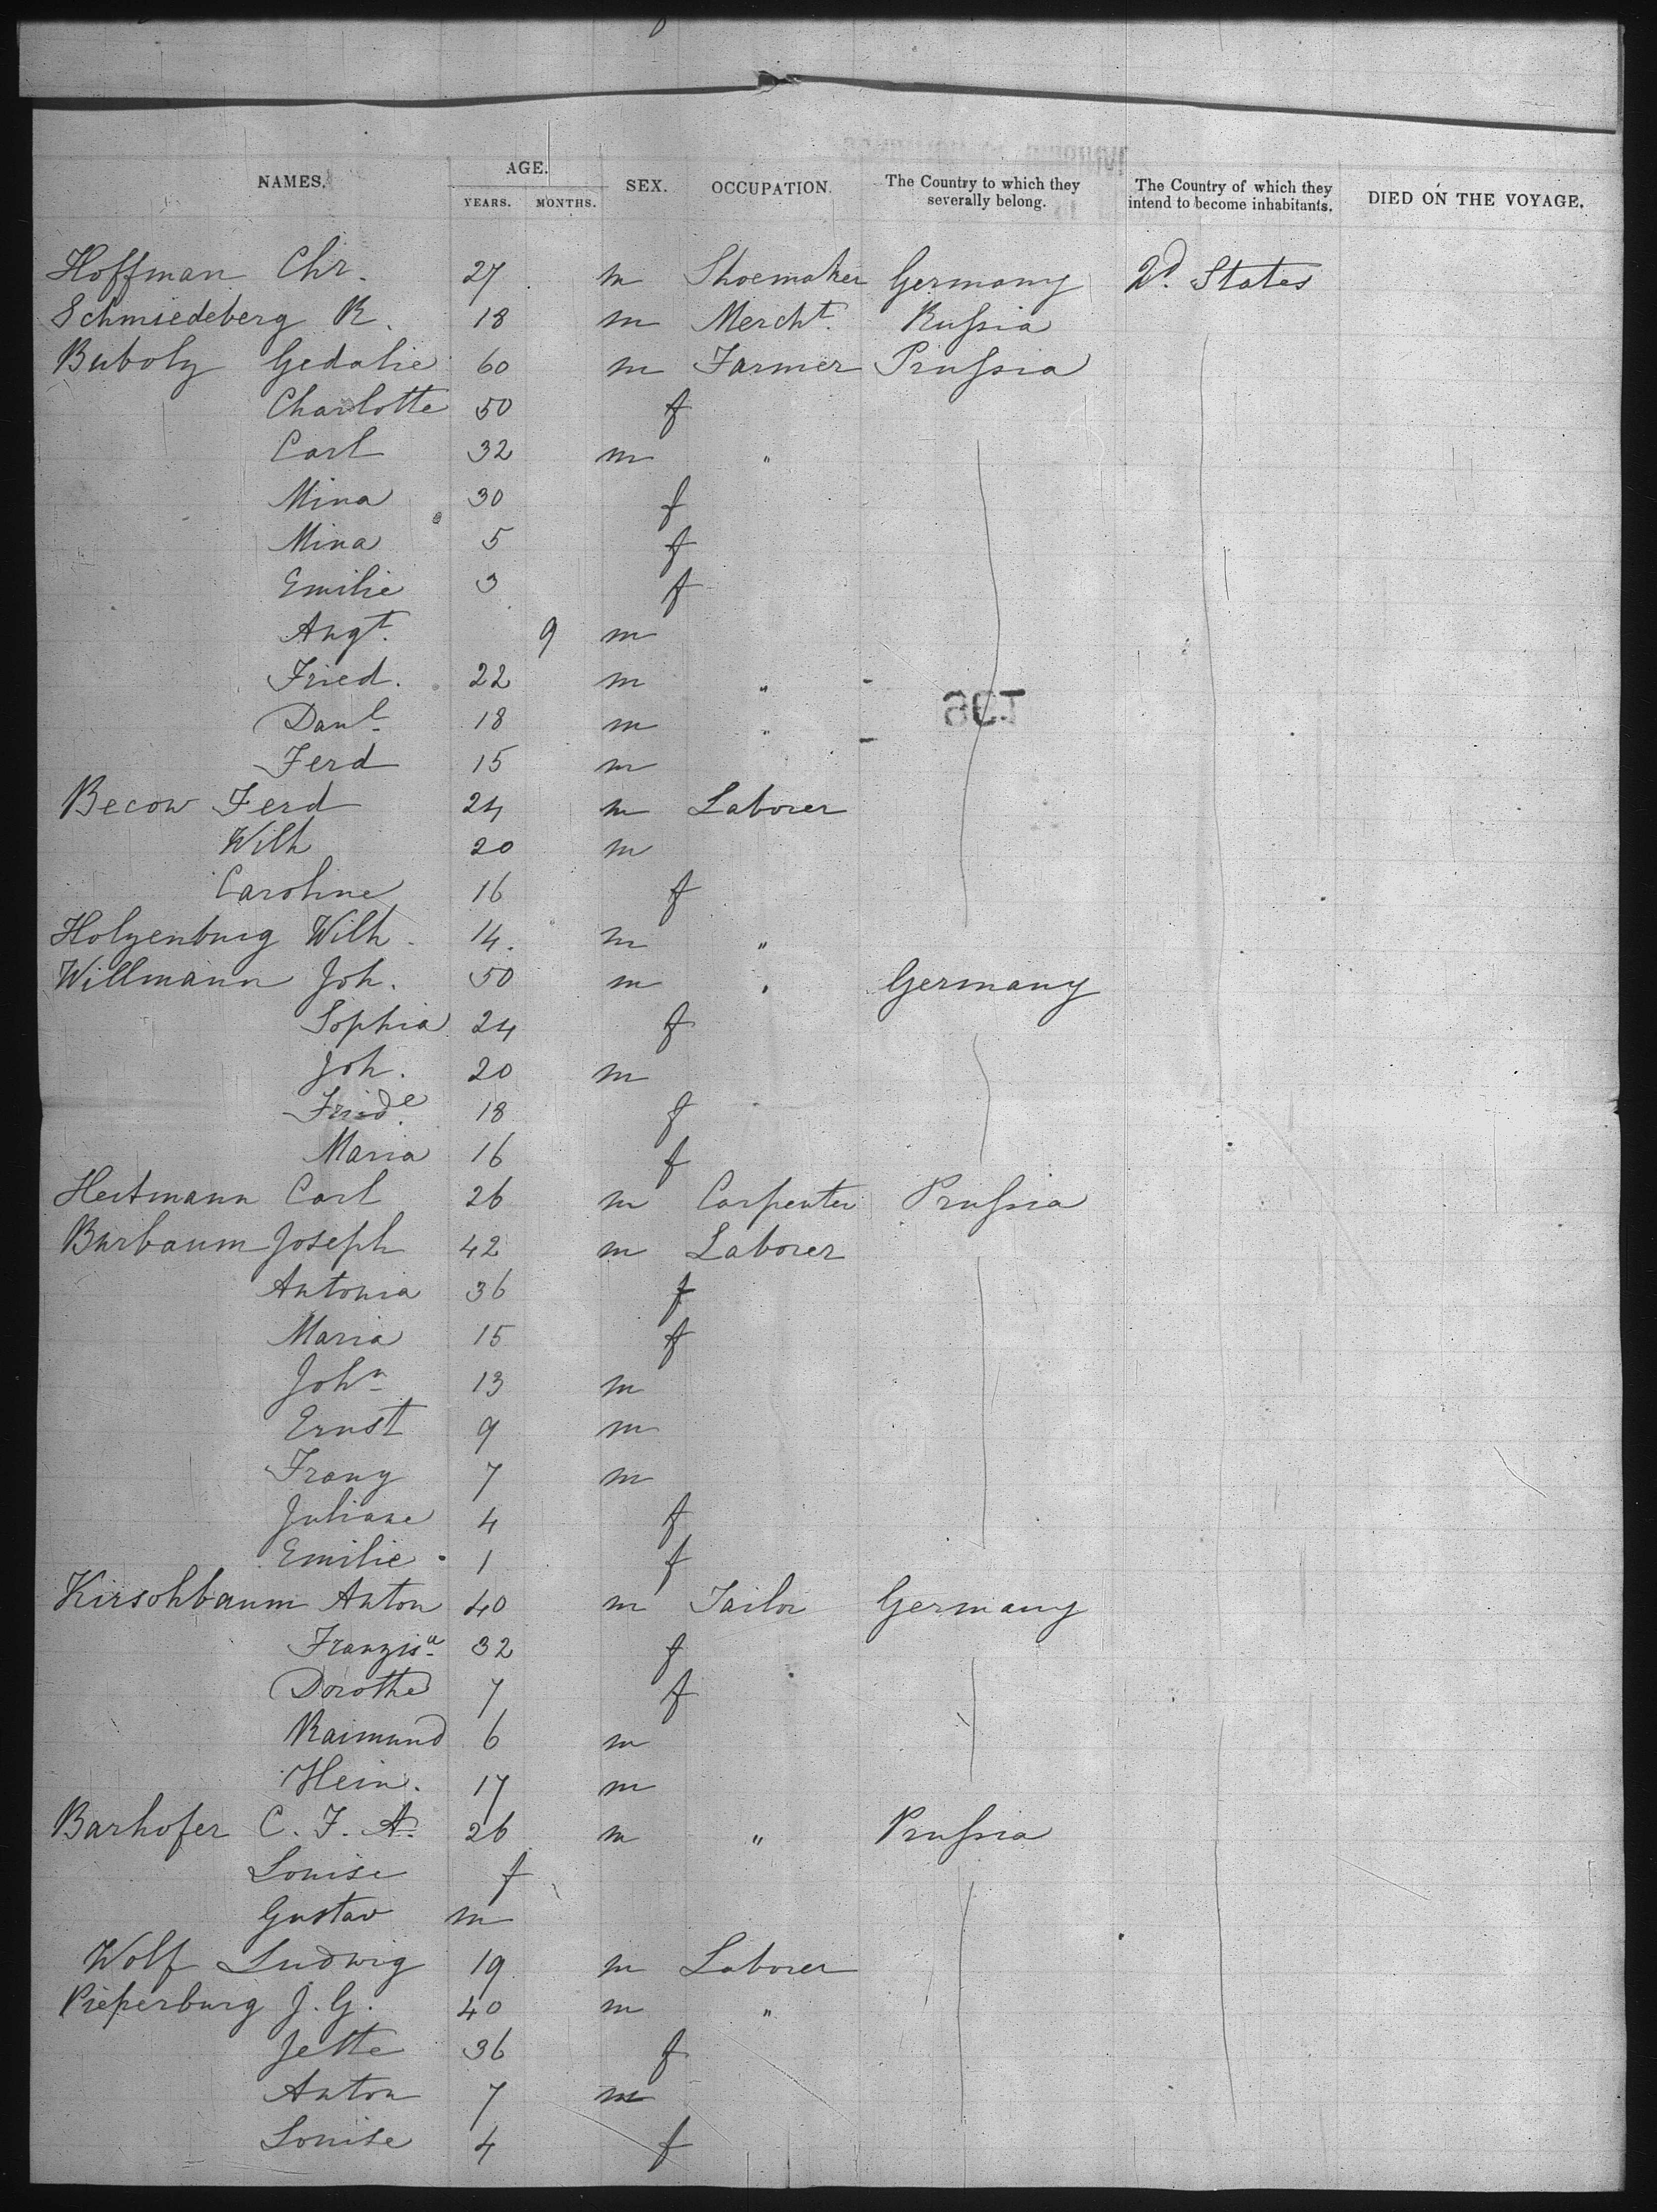 NAMES. AGE. SEX. OCCUPATION. The Country to which they severally belong. The Country of which they intend to become inhabitants. DIED ON THE VOYAGE.
YEARS. MONTHS.
Hoffman Chr. 27 m Shoemaker Germany Ud. States
Schmiedeberg R. 18 m Mercht. Russia
Buboly Gedalie 60 m Farmer Prussia
Charlotte 50 f
Carl 32 m "
Mina 30 f
Mina 5 f
Emilie 3 f
Augt. 9 m
Fried. 22 m "
Danl 18 m "
Ferd 15 m
Becow Ferd 24 m Laborer
Wilh 20 m
Caroline 16 f
Holzenburg Wilh. 14. m "
Willmann Joh. 50 m " Germany
Sophia 24 f
Joh. 20 m
Friede 18 f
Maria 16 f
Heitmann Carl 26 m Carpenter Prussia
Burbaum Joseph 42 m Laborer
Antonia 36 f
Maria 15 f
John 13 m
Ernst 9 m
Franz 7 m
Juliane 4 f
Emilie 1 f
Kirschbaum Anton 40 m Tailor Germany
Franzisa 32 f
Dorothe 7 f
Raimund 6 m
Hein. 17 m
Barhofer C. F. A. 26 m " Prussia
Louise f
Gustav m
Wolf Ludwig 19 m Laborer
Pieperburg J. G. 40 m "
Jette 36 f
Anton 7 m
Louise 4 f